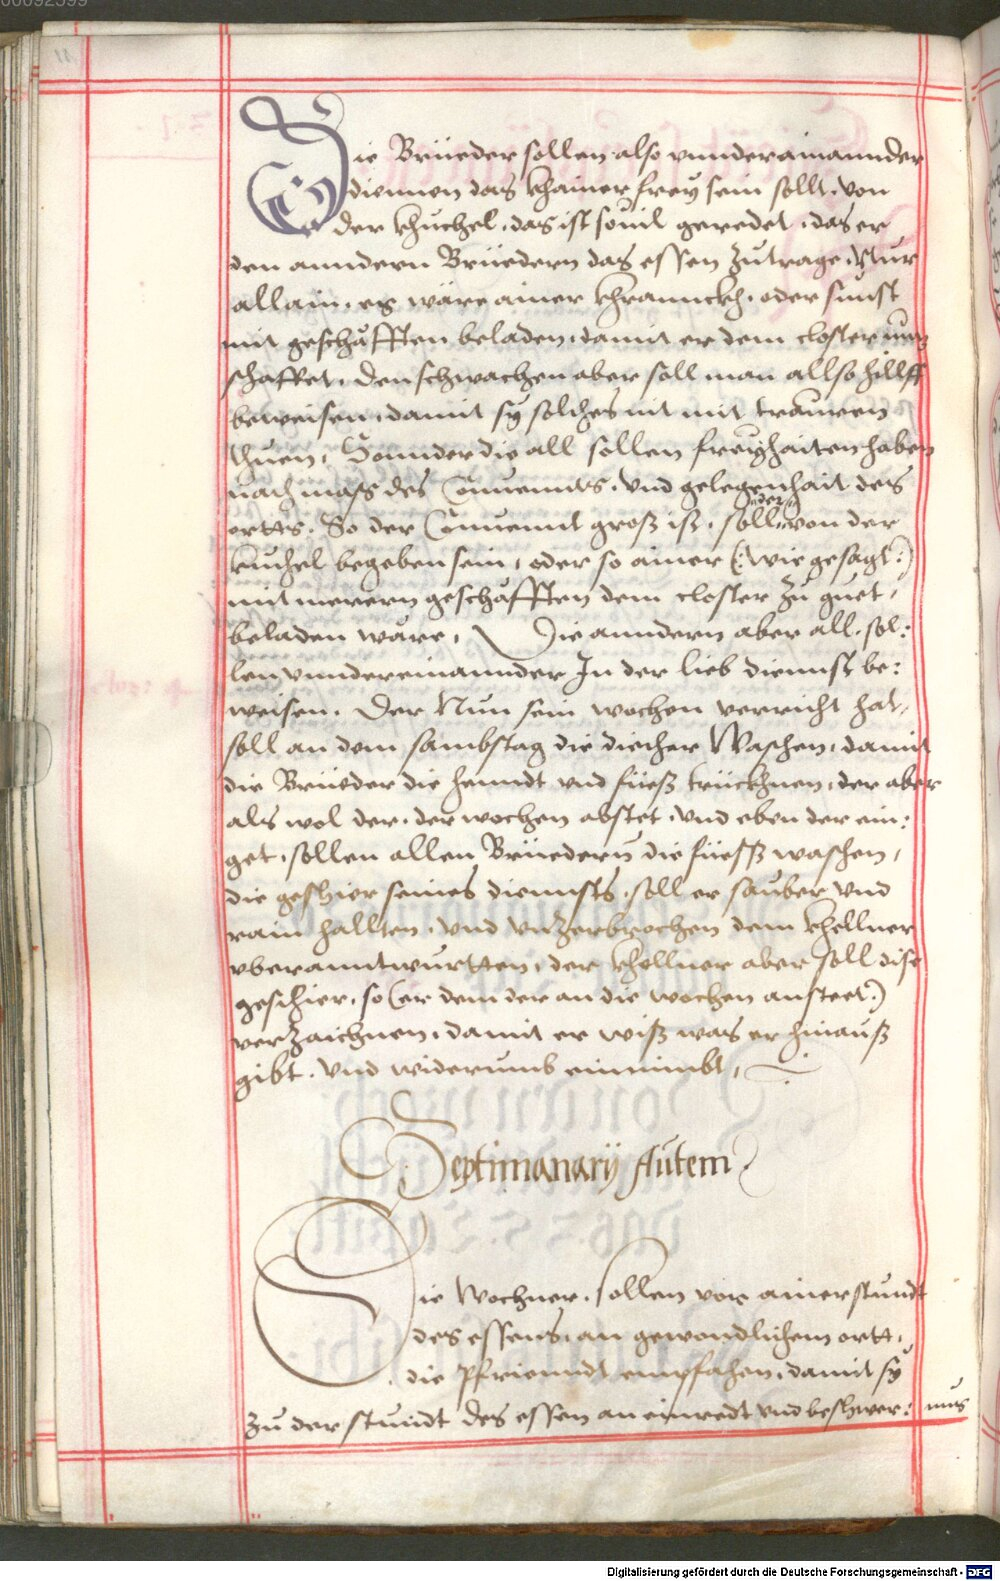 Die Brüeder sollen also vnnderainannder
diennen das khainer frey sein sollt, von
der khuchel, das ist souil geredet, das er
den anndern Brüedern das essen zutrage, Nur
allain, es wäre ainer khrannckh, oder sunst
mit geschäfften beladen, damit er dem closter nuz
schaffet. Den schwachen aber soll man allso hillff
beweisen, damit sy solches nit mit trauren
thuen, Sonnder die all sollen freyhaiten haben
nach mass des Conuennts, vnd gelegenhait des
ortts. So der Conuennt groß ist, soll er von der
kuchel begeben sein, oder so ainer (: wie gesagt :)
mit merern geschäfften dem closter zu guet,
beladen wäre, Die anndern aber all, sol:
len vnndereinannder In der lieb diennst be:
weisen. Der Nun sein wochen verricht hat,
soll an dem sambstag die diecher Waschen, damit
die Brüeder die henndt vnd füess trückhnen, der aber
als wol der, der wochen abstet, vnd eben der ein:
get, sollen allen Brüedern die füess waschen,
die geshier seines diennsts, soll er sauber vnd
rain hallten, vnd vnzerbrochen dem khellner
vberanntwurtten, der khellner aber soll dise
geschier, so (er dem der an die wochen ansteet :)
verzaichnen, damit er wiß was er hinauß
gibt, vnd widerumb einnimbt,
Septimanarij Autem
Die Wochner, sollen vor ainer stundt
des essens, an gewondlichem ortt,
die Pfrienndt empfahen, damit sy
zu der stundt des essen an einredt vnd beshwer: nus
Digitalisierung gefördert durch die Deutsche Forschungsgemeinschaft - DFG